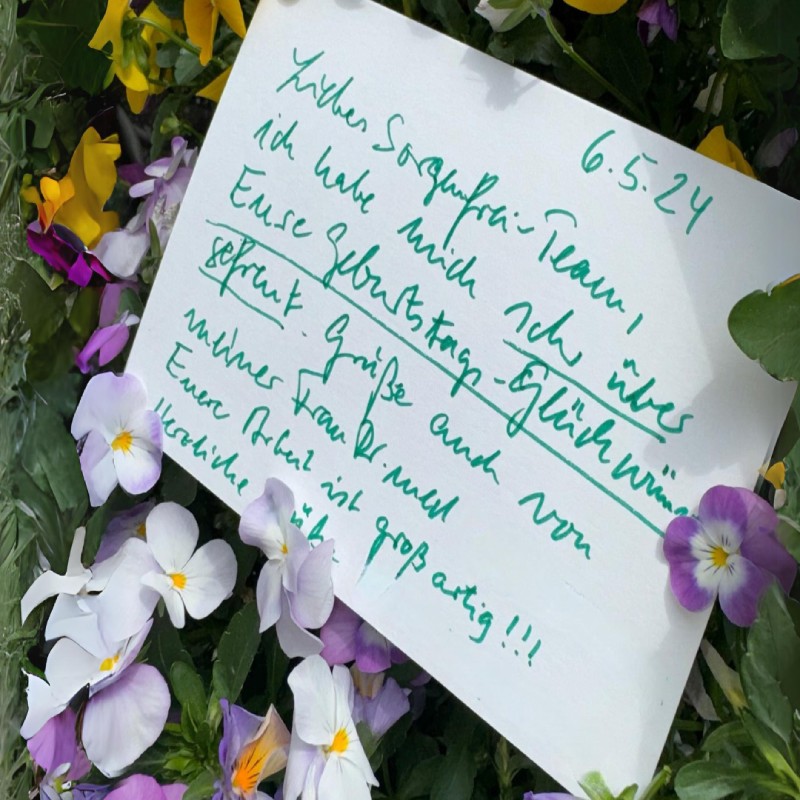 6.5.24
Liebes Sorgenfrei-Team,
ich habe mich sehr über
Eure Geburtstags-Glückwün
gefreut. Grüße auch von
meiner Frau Dr. med
Eure Arbeit ist großartig!!!
Herzliche